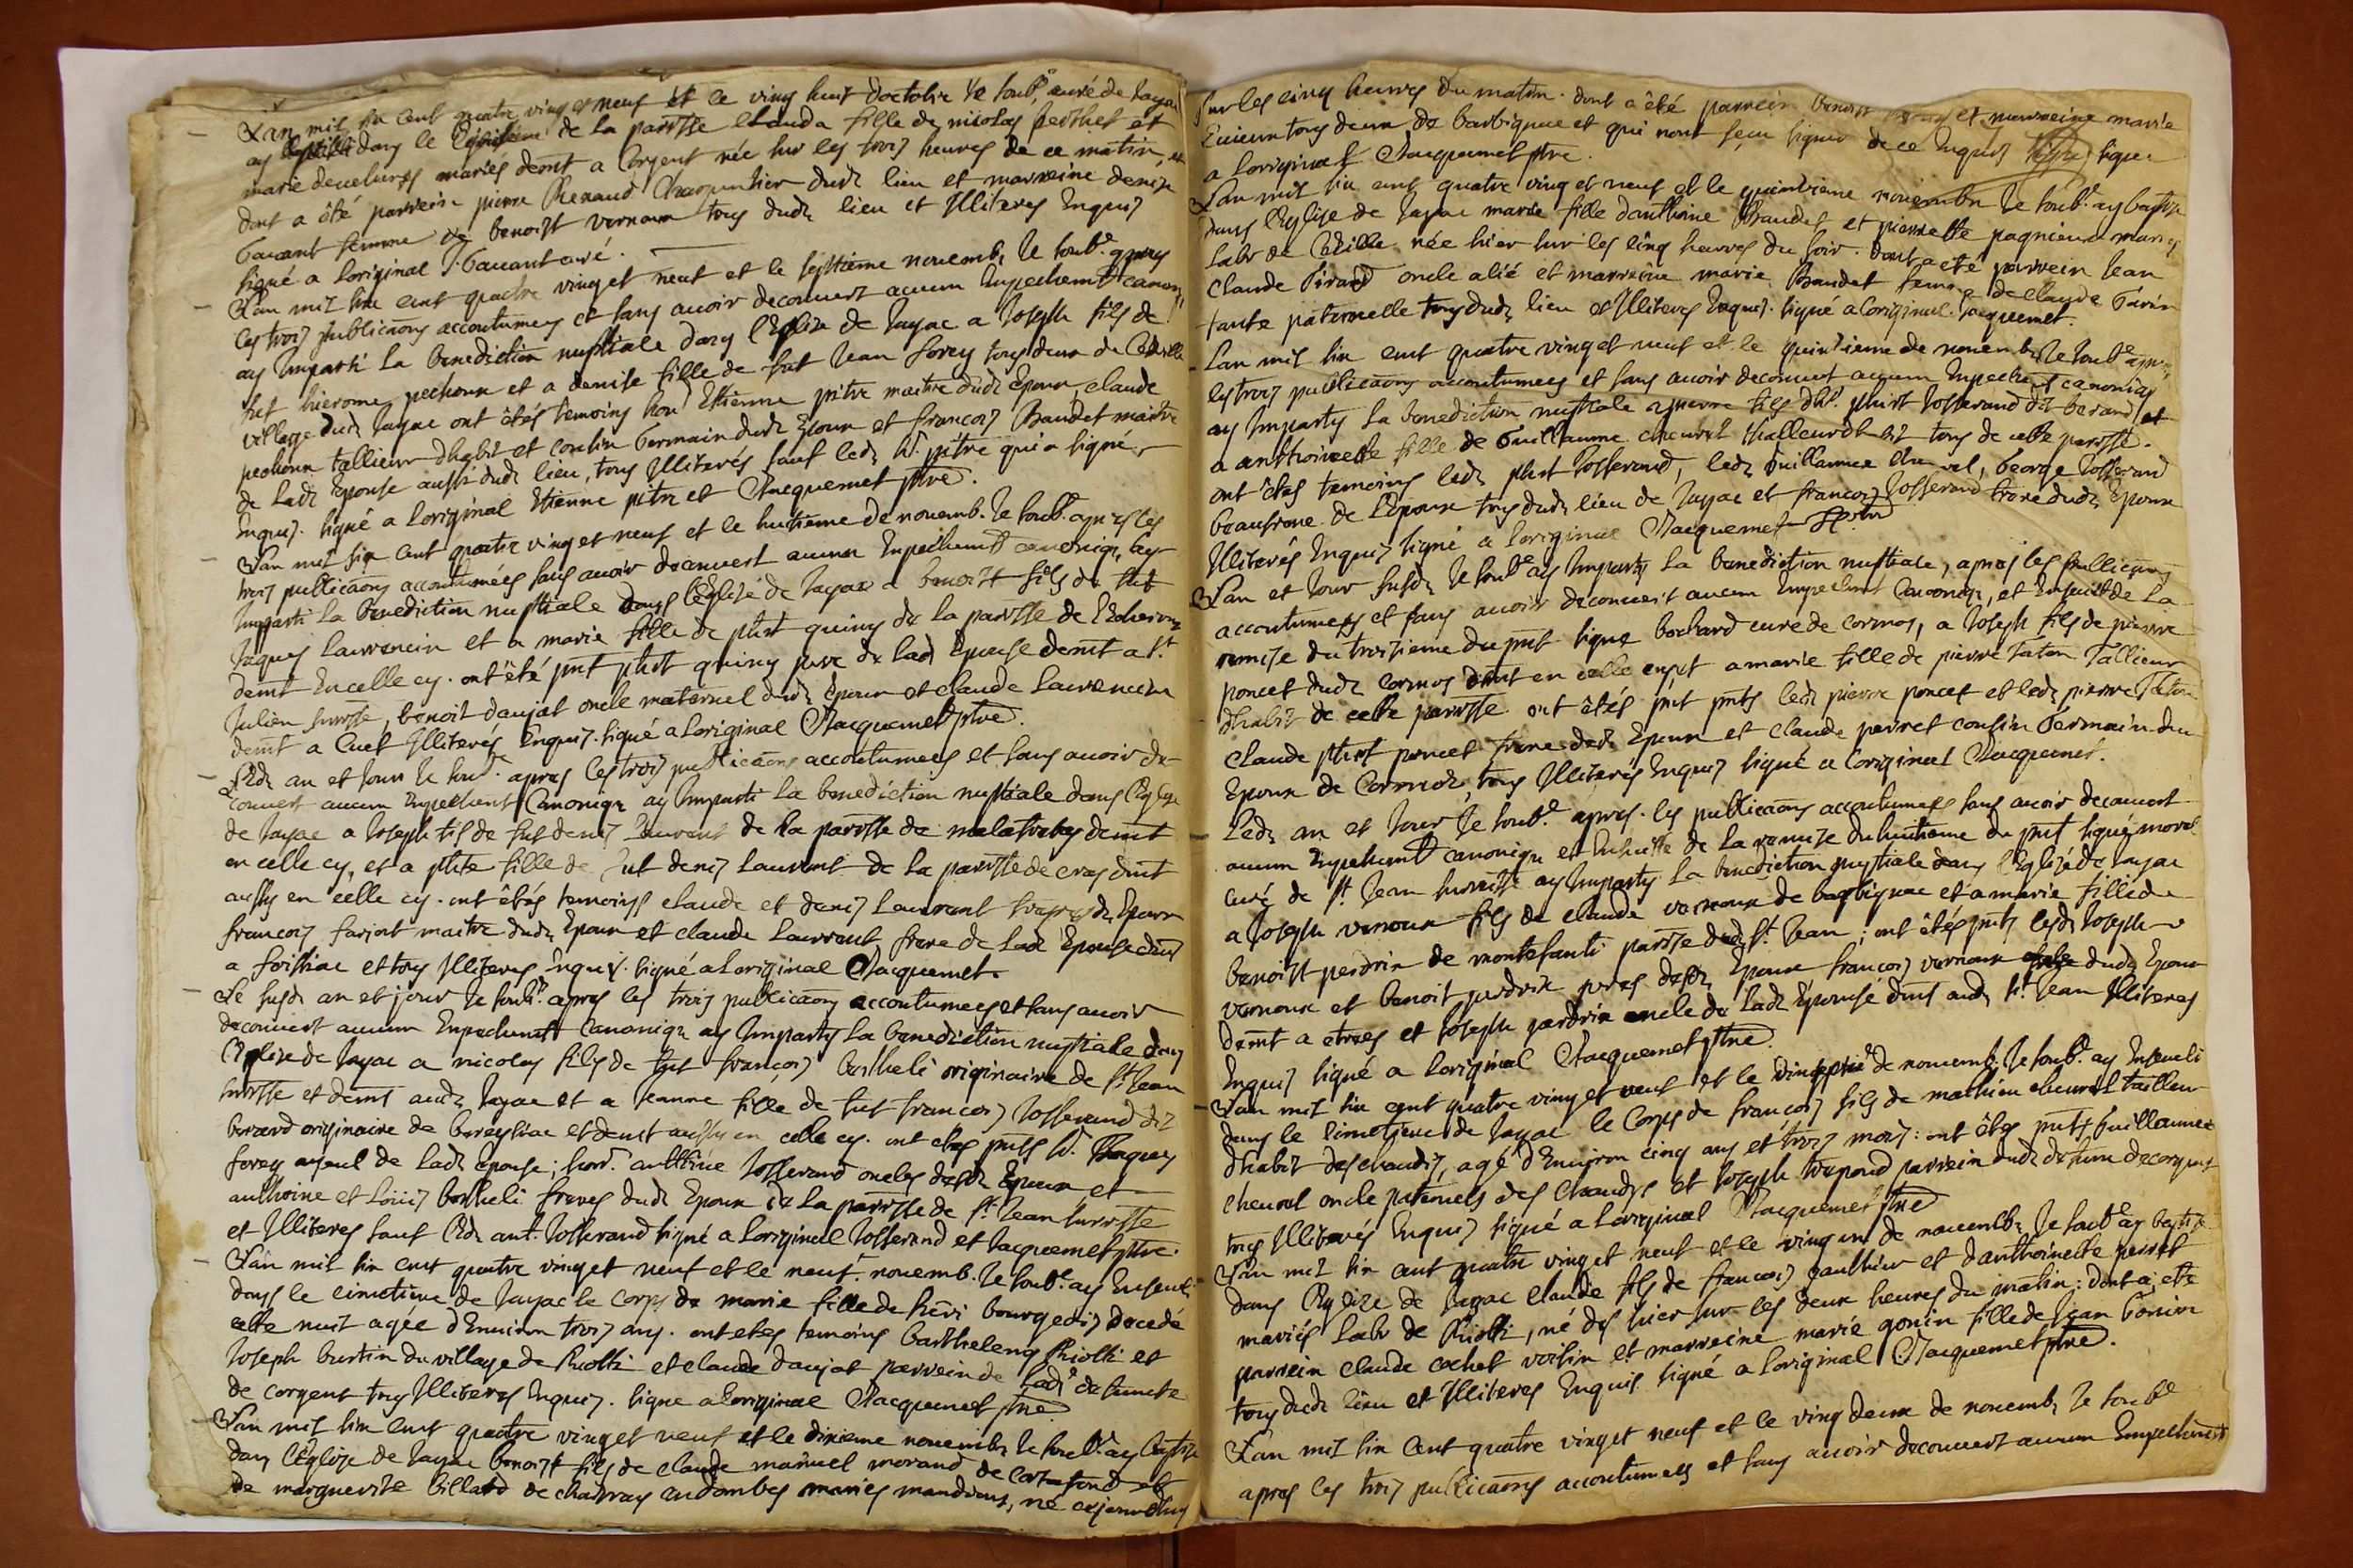 Lan mil six cent quatre vingt et neuf et le ving huit doctobre Je soub.é curé de Jayac
ay dans le de la parosse Clauda fille de nicolas berthet et
marie demt a Corgent née sur les trois heures de ce matin, et
dont a été parrein pierre Renaud Charpentier dudt lieu et marreine denise
femme de benoist vernoux tous dudt lieu et Illiteres Enquis
signé a loriginal curé.
Lan mil six cent quatre vinget neuf et le septieme novemb. Je soub.é apres
les trois publicaons accoutumees et sans avoir decouvert aucun Empechemt canon.
ay Imparti La benediction nuptiale dans l'Eglise de Jayac a Joseph fils de
fut hierome pechoux et a denise fille de fut Jean forey tous deux de
village dudt Jayac ont êtés temoins hon. Ettienne pitre maitre dudt Epoux, claude
pechoux tallieur dhabit et cousin Germain dudt Epoux et francois Baudet maitre
de ladt Epouse aussi dudt lieu, tous Illiterés sauf ledt Sr. pitre qui a signé.
Enquis. signé a Loriginal Etienne pitre et Jacquemet ptre.
Lan mil six cent quatre ving et neuf et le huitieme de novemb. Je soub. apres les
trois publicaons accoutumées sans avoir decouvert aucun Empechemt canoniq, ay
Imparti la benediction nuptiale dans l'Eglise de Jayac a benoist fils de fut
Jaques Laurencin et a marie fille de phit quiny de la parosse de
demt En celle cy. ont été pnt phit quiny pere de lad Epouse demt a St.
Julien surosse, benoit daujat oncle maternel dudt Epoux et claude Laurencin
demt a Cuet Illiterés Enquis. signé a Loriginal Jacquemet ptre.
Ledt an et Jour Je soub. apres les trois publicaons accoutumees et sans avoir de-
couvert aucun Empechemt Canoniqe ay Imparti La benediction nuptiale dans l'Eglise
de Jayac a Joseph fils de fut denis Laurent de la parosse de malafretay demt
en celle cy, et a phte fille de fut denis Laurent de la parosse de cras demt
aussy en celle cy. ont êtés temoins claude et denis Laurent freres de Epoux
francois farjot maitre dudt Epoux et claude Laurent frere de Ladt Epouse demt
a foissiac et tous Illiteres Enquis. signé a Loriginal Jacquemet.
Le susdt an et jour Je soub.é apres les trois publicaons accoutumees et sans avoir
decouvert aucun Empechemt Canoniqe ay Imparty La benediction nuptiale dans
l'Eglise de Jayac a nicolas fils de fut francois bertheli originaire de St Jean
surosse et demt audt Jayac et a Jeanne fille de fut francois Josserand dit
berard originaire de bereysiac et demt aussy en celle cy. ont etes pnts Sr. Jaques
forey ayeul de Ladt Epouse; hon. anthoine Josserand oncles desdt Epoux et
anthoine et Loüis bertheli freres dudt Epoux de La parosse de St Jean surosse
et Illiteres sauf Ledt ant. Josserand signé a Loriginal Josserand et Jacquemet ptre.
Lan mil six cent quatre vinget neuf et le neuf. novemb. Je soub.é ay Enseveli
dans le cimetiere de Jayac le corps de marie fille de hēri bourgeois decedé
cette nuit agée d'Environ trois ans. ont etes temoins barthelemy Riotti et
Joseph bustin du village de Riotti et claude daujat parrein de Ladt defuncte
de corgent tous Illiteres Enquis. signé a Loriginal Jacquemet ptre.
Lan mil six cent quatre vinget neuf et le dixieme novembr Je soub.é ay baptise
dans l'Eglise de Jayac benoist fils de claude manuel morand de et
de marguerite billard de en dombes mariés mandians, né aujourdhuy
sur les cinq heures du matin. dont a été parrein benoist et marreine marie
tous deux de barbignac et qui nont sçeu signer de ce Enquis signé
a Loriginal Jacquemet ptre.
Lan mil six cent quatre ving et neuf et le quinzieme novembre Je soub.é ay baptise
dans l'Eglise de Jayac marie fille danthoine Baudet et pierrette pagnieux mariés
Labr de née hier sur les cinq heures du soir. dont a eté parrein Jean
Claude Pirard oncle alié et marreine marie Baudet femme de claude Parin
tante paternelle tous dudt lieu et Illiteres Enquis. signé a Loriginal. Jacquemet.
Lan mil six cent quatre vinget neuf et le quinzieme de novemb. Je soub.é apres
les trois publicaons accoutumees et sans avoir decouvert aucun Empechemt canoniqe
ay Imparty la benediction nuptiale a pierre fils dht. phirt Josserand dit berard et
a anthoinette fille de Guillaume chevrel thailleur dhabit tous de cette parosse.
ont êtes temoins ledt phirt Josserand, ledt Guillaume chevrel, George Josserand
beaufrere de l'Epoux tous dudt lieu de Jayac et francois Josserand frere dudt Epoux
Illiterés Enquis signé a Loriginal Jacquemet ptre
Lan et Jour susdt Je soub.é ay Imparty La benediction nuptiale, apres les publicaons
accoutumees et sans avoir decouvert aucun Empechemt Canoniqe, et Ensuitte de La
remise du troisieme du pnt signé bochard curé de cormos, a Joseph fils de pierre
poncet dudt cormos demt en celle cy et a marie fille de pierre Taton Tallieur
dhabit de cette parosse. ont êtés pnt pnts ledt pierre poncet et ledt pierre Taton
Claude phirt poncet frere dudt Epoux et claude perret cousin Germain du
Epoux de Cormoz, tous Illiterés Enquis signé a Loriginal Jacquemet.
Ledt an et Jour Je soub.é apres les publicaons accoutumees sans avoir decouvert
aucun Empechemt canoniqe et Ensuitte de La remise du huitieme du pnt signé morel
curé de St. Jean surosse ay Imparty La benediction nuptiale dans l'Eglise de Jayac
a Joseph vernoux fils de claude vernoux de barbignac et a marie fille de
benoist perdrix de montefanti parosse dudt St. Jean; ont êtés pnts lesdt Joseph
vernoux et benoit perdrix peres desdt Epoux francois vernoux dudt Epoux
demt a etrees et Joseph perdrix oncle de Ladt Epouse demt audt St. Jean Illiteres
Enquis signé a Loriginal Jacquemet ptre.
Lan mil six cent quatre ving et neuf et le de novemb. Je soub.é ay Enseveli
dans le cimetiere de Jayac le Corps de francois fils de mathieu chevrel tailleur
dhabit des chaudis, agé d'Environ cinq ans et trois mois: ont êtes pnts Guillaume
chevrel oncle paternels des Chaudys et Joseph parrein dudt defunt de corgent
tous Illiterés Enquis signé a Loriginal Jacquemet ptre
Lan mil six cent quatre vinget neuf et le ving un de novemb. Je soub.é ay baptise
dans l'Eglise de Jayac claude fils de francois gauthier et danthoinette perret
mariés Labr de Riotti, né des hier sur les deux heures du matin: dont a eté
parrein claude cochet voisin et marreine marie gonin fille de Jean Gonin
tous dudt lieu et Illiteres Enquis signé a Loriginal Jacquemet ptre.
Lan mil six Cent quatre vinget neuf et le ving deux de novemb. Je soub.é
apres les trois publicaons accoutumees et sans avoir decouvert aucun Empechemt